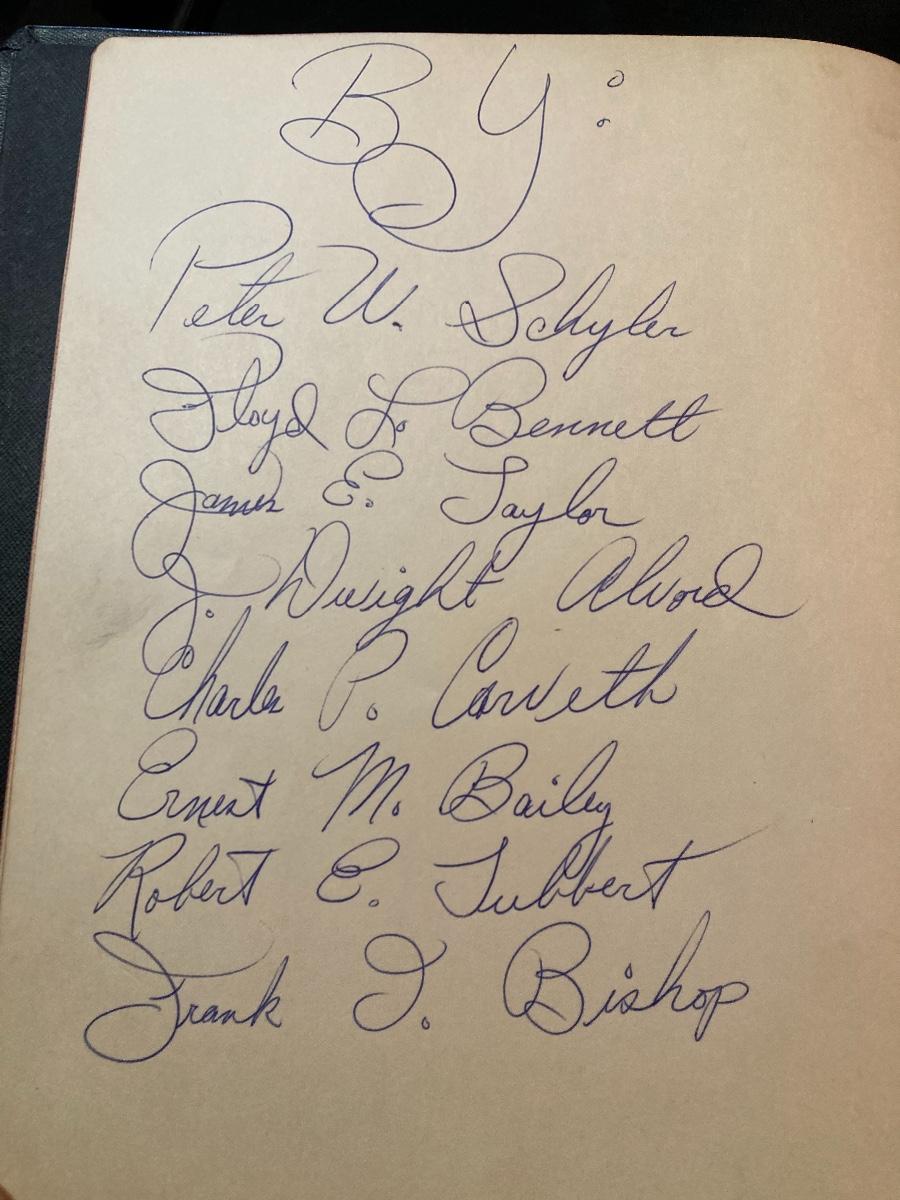 By:
Peter W. Schyler
Floyd L. Bennett
James E. Taylor
J. Dwight Alvord
Charles P. Carveth
Ernest M. Bailey
Robert E. Tubbert
Frank J. Bishop